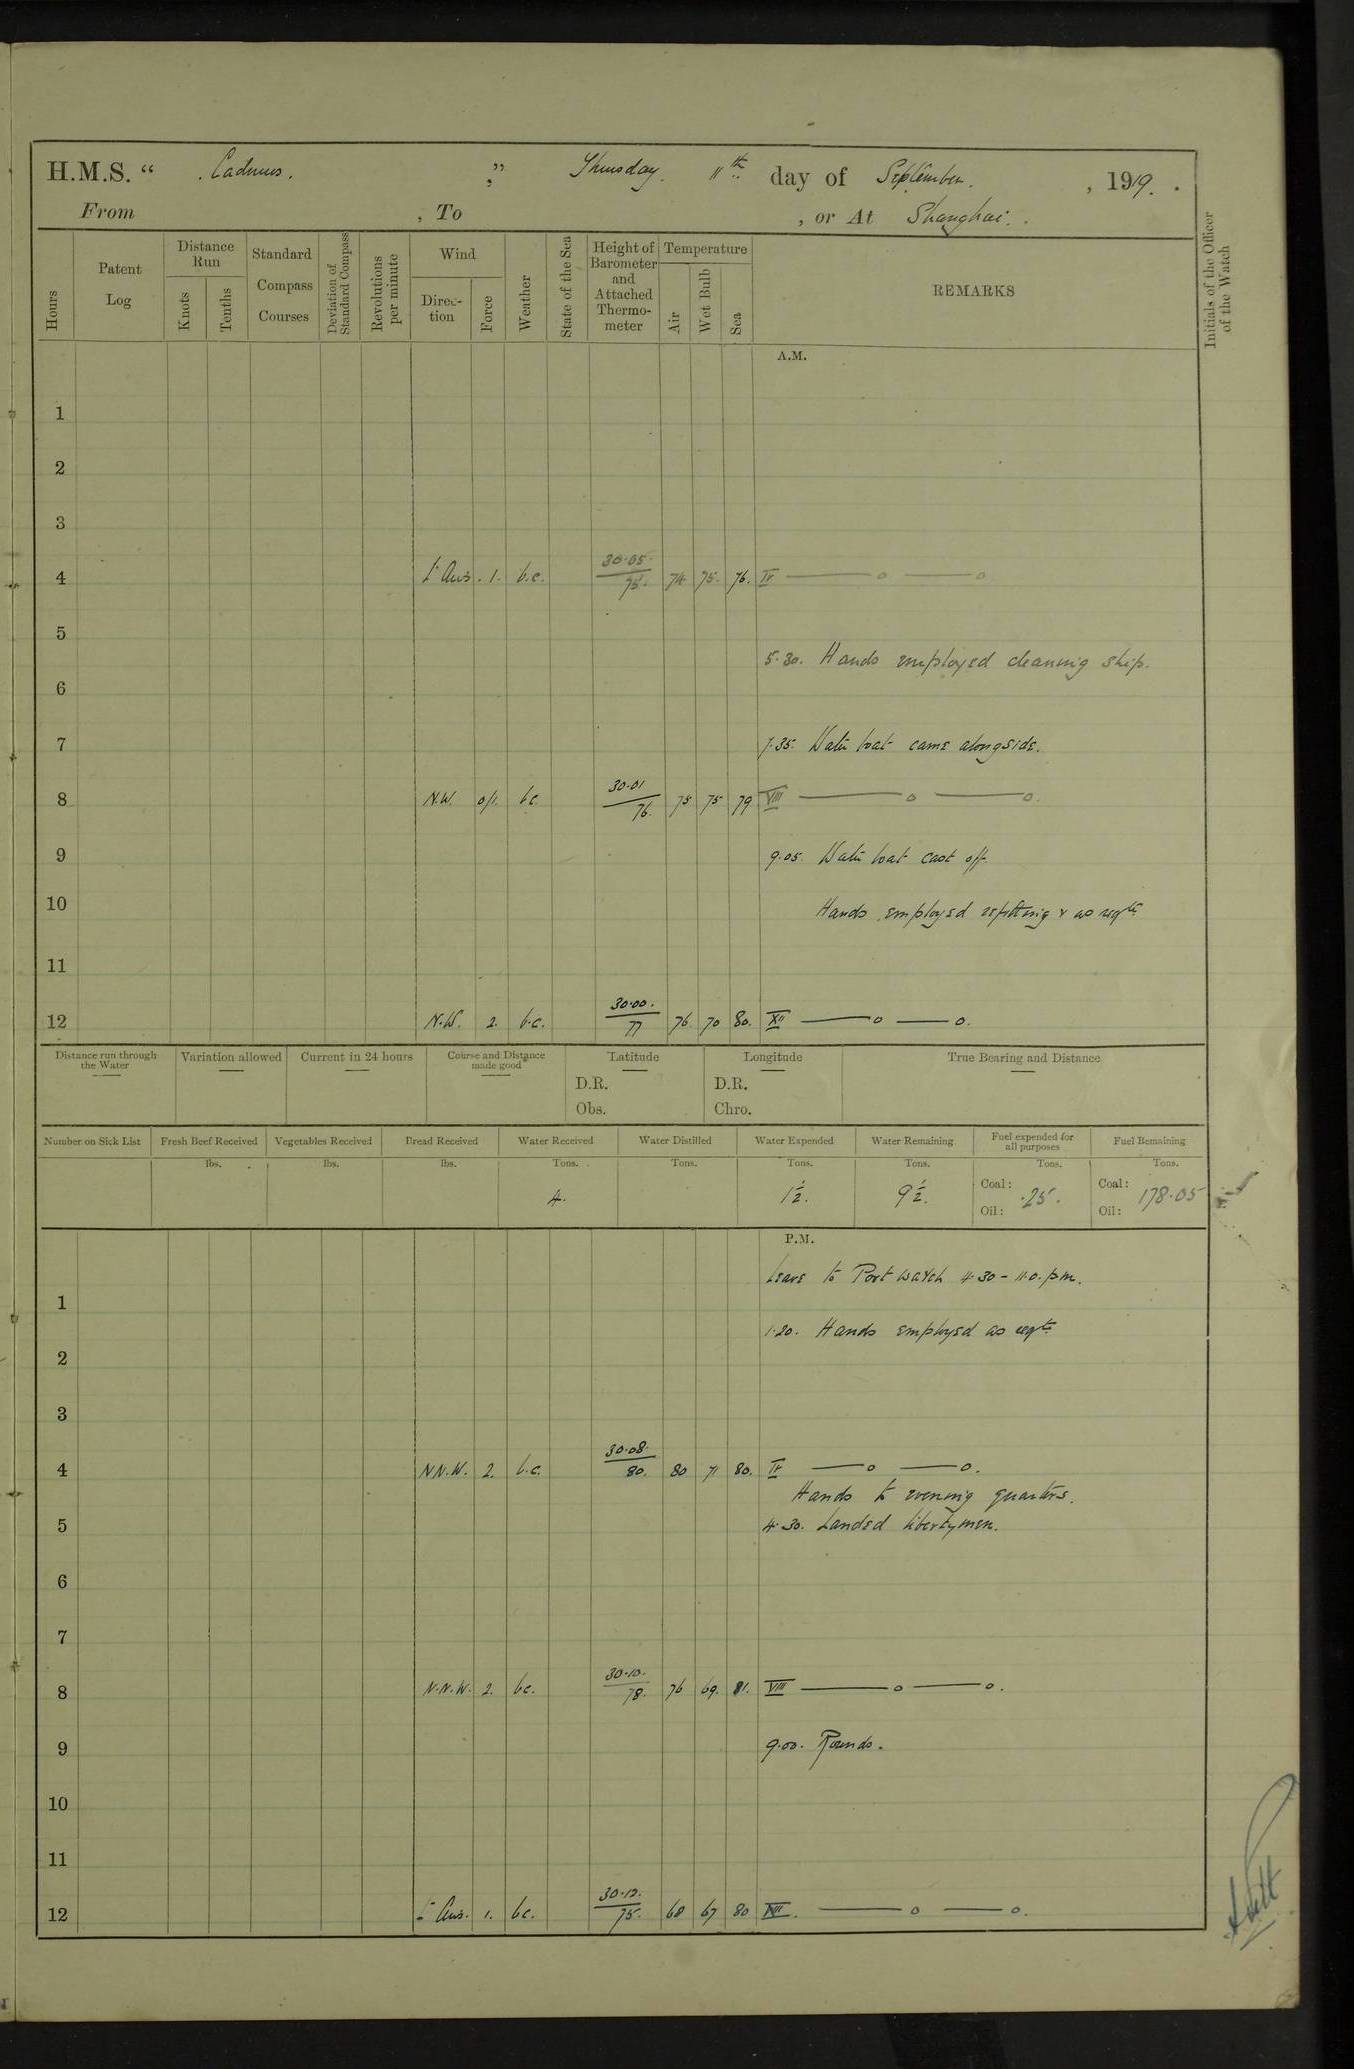 H.M.S. " Cadmus. ," Thursday. 11th day of September. , 1919.
From , To , or At Shanghai.
Hours
Patent Log
Distance Run
Knots
Tenths
Standard Compass Courses
Deviation of Standard Compass
Revolutions per minute
Wind
Direc-tion
Force
Weather
State of the Sea
Height of Barometer and Attached Thermo-meter
Temperature
Air
Wet Bulb
Sea
REMARKS
Initials of the Officer of the Watch
A.M.
1
2
3
4 Lt Airs. 1. b.c. 30.05 75. 74 75. 76. IV
5
5.30. Hands employed cleaning ship.
6
7 7.35. Water boat came alongside.
8 N.W. 0/1. bc. 30.01 76. 75 75 79 VIII
9 9.05. Water boat cast off.
10 Hands employed refitting & as reqte
11
12 N.W. 2. b.c. 30.00. 77 76. 70 80. XII
Distance run through the Water
Variation allowed
Current in 24 hours
Course and Distance made good
Latitude
D.R.
Obs.
Longitude
D.R.
Chro.
True Bearing and Distance
Number on Sick List
Fresh Beef Received
Vegetables Received
Bread Received
Water Received
Water Distilled
Water Expended
Water Remaining
Fuel expended for all purposes
Fuel Remaining
lbs. lbs. lbs. Tons. Tons. Tons. Tons. Tons. Tons.
4. 1½. 9½. Coal: .25. Coal: 178.05
Oil: Oil:
P.M.
Leave to Port watch 4.30 - 11.0. pm.
1
1.20. Hands employed as reqte
2
3
4 N.N.W. 2. b.c. 30.08. 80. 80 71 80. IV
Hands to evening quarters.
5 4.30. Landed libertymen.
6
7
8 N.N.W. 2. bc. 30.10. 78. 76 69. 81. VIII
9 9.00. Rounds.
10
11
12 Lt Airs. 1. bc. 30.12. 75. 68 67 80 XII.